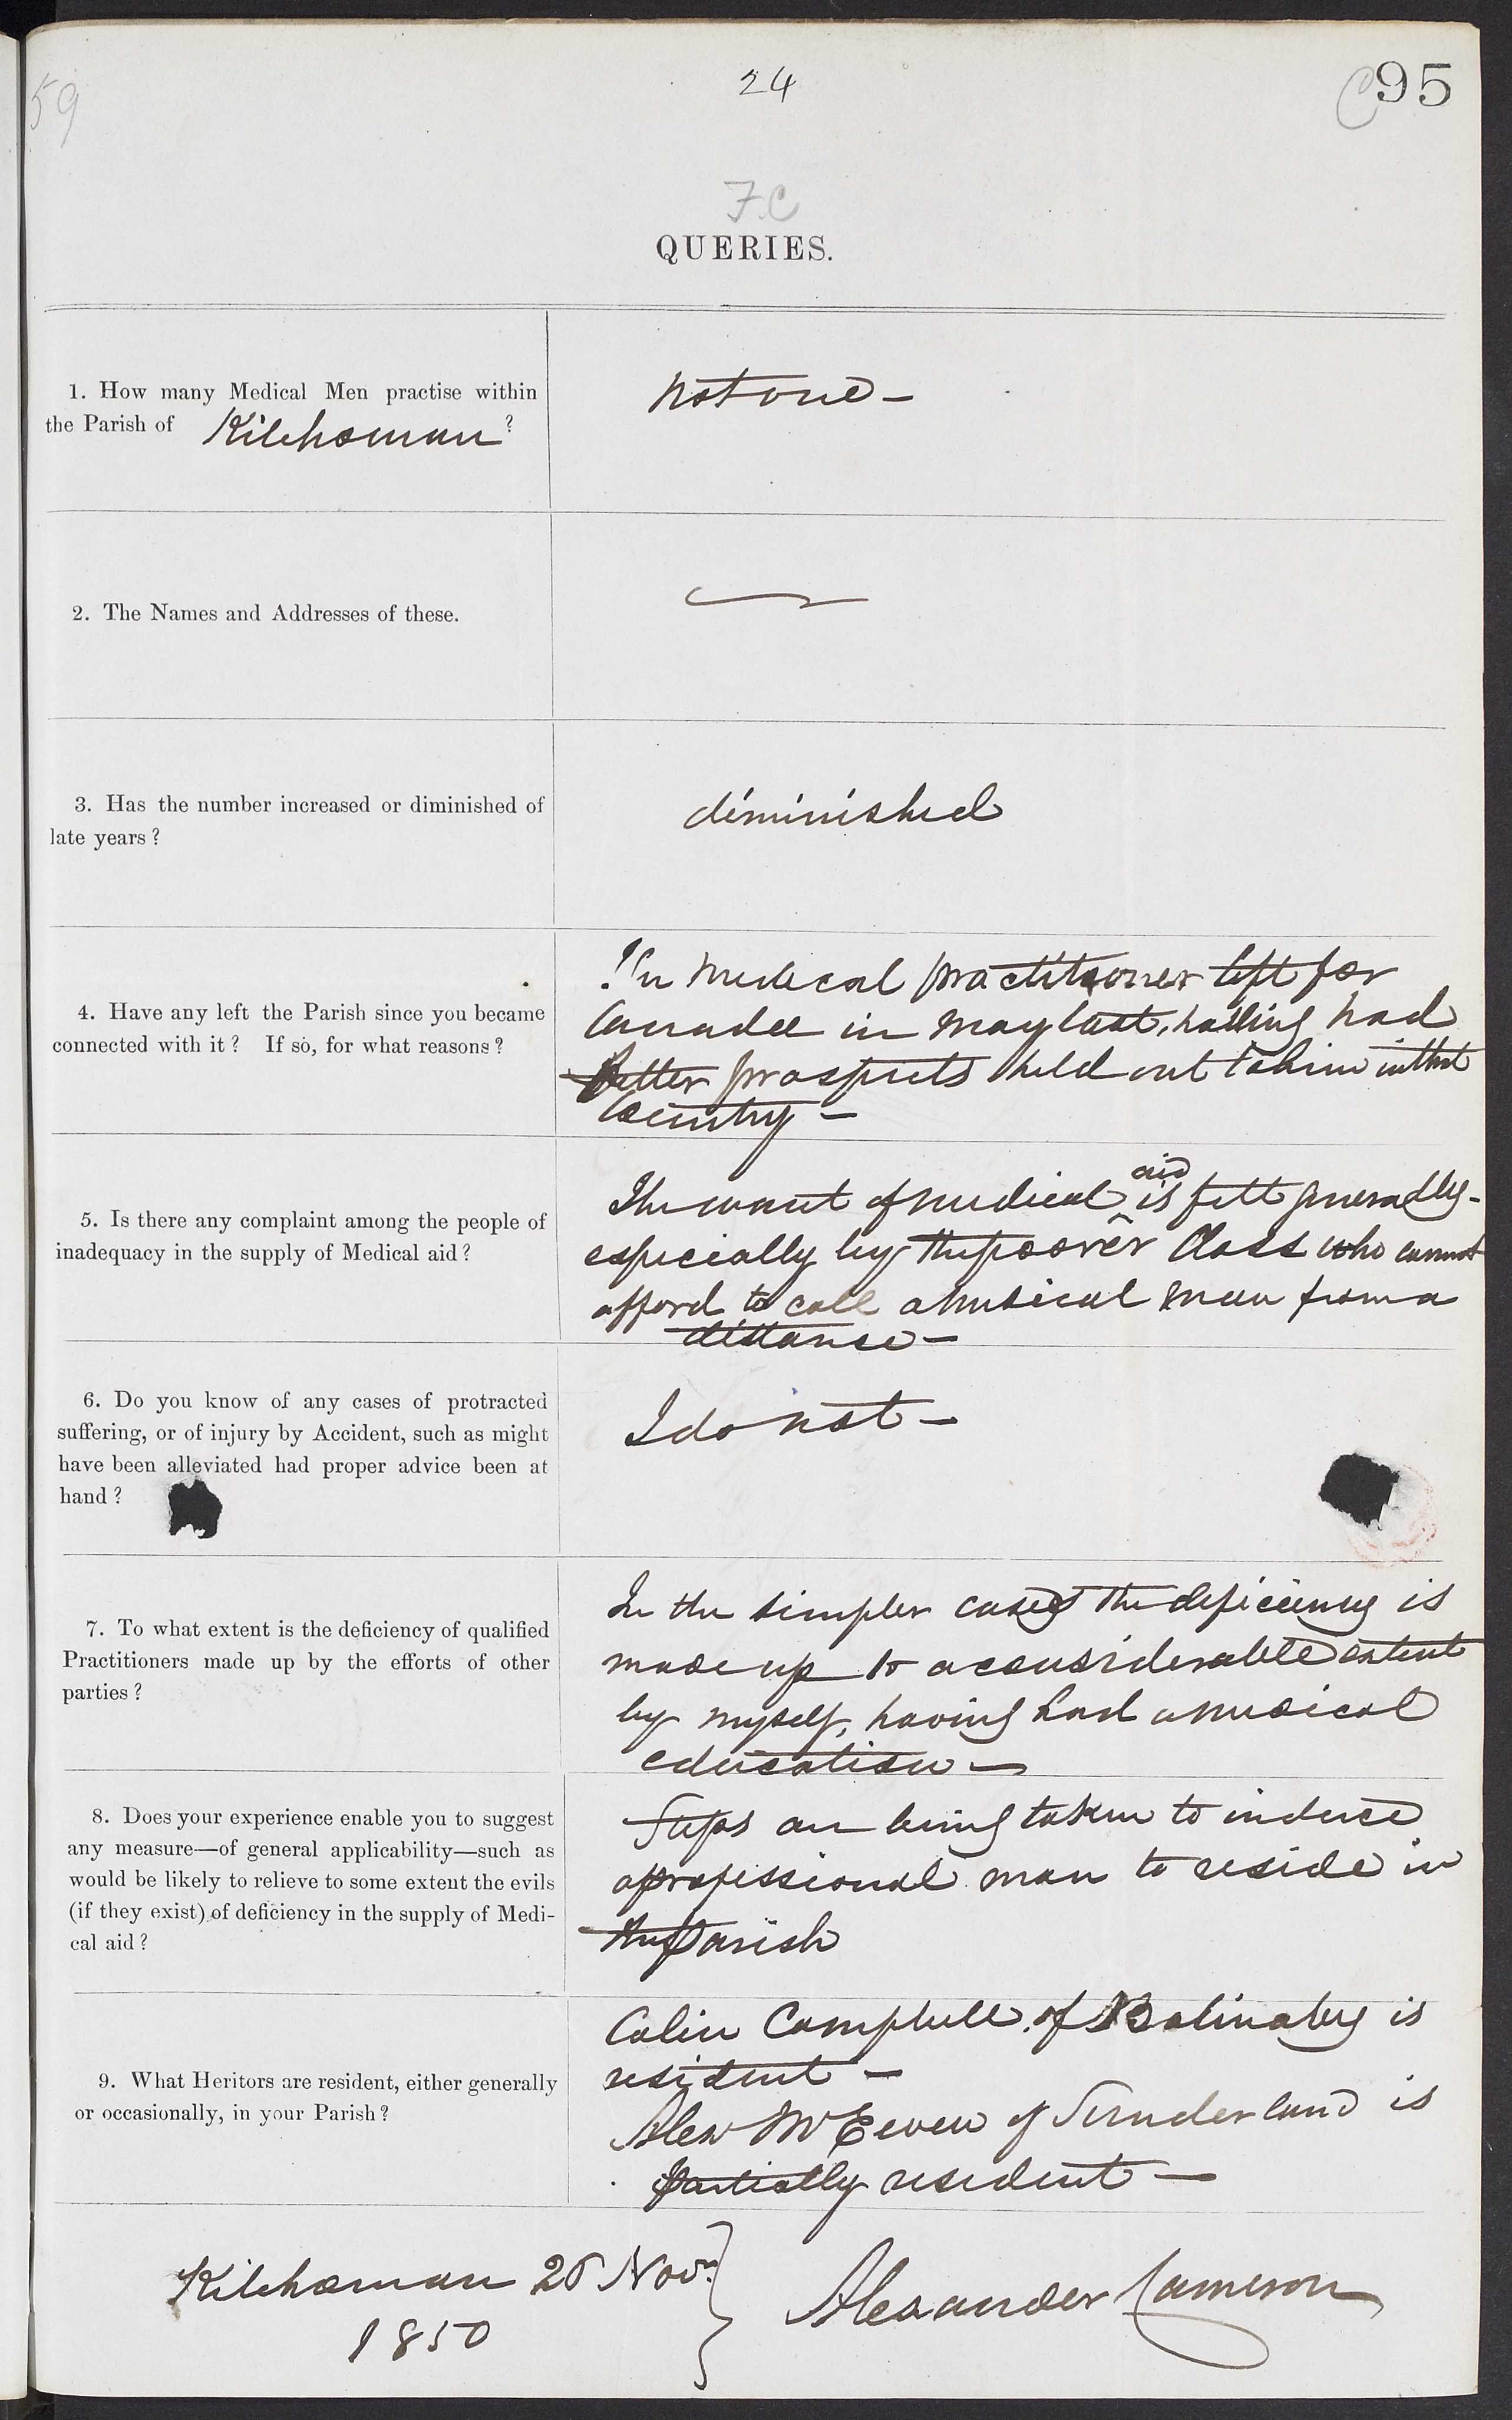 59
24
C95
F.C
QUERIES.
1. How many Medical Men practise within
the Parish of Kilchoman?
not one -
2. The Names and Addresses of these.
3. Has the number increased or diminished of
late years?
diminished
4. Have any left the Parish since you became
connected with it? If so, for what reasons?
Medical practitioner left for
Canada in May last, having had
better prospects held out to him in that
Country -
5. Is there any complaint among the people of
inadequacy in the supply of Medical aid?
The want of medical aid is felt generally -
especially by the poorer Class who cannot
afford to call a medical man from a
distance -
6. Do you know of any cases of protracted
suffering, or of injury by Accident, such as might
have been alleviated had proper advice been at
hand?
I do not -
7. To what extent is the deficiency of qualified
Practitioners made up by the efforts of other
parties?
In the simpler cases the deficiency is
made up to a considerable extent
by myself, having had a medical
education -
8. Does your experience enable you to suggest
any measure—of general applicability—such as
would be likely to relieve to some extent the evils
(if they exist) of deficiency in the supply of Medi-
cal aid?
Steps are being taken to induce
a professional man to reside in
the Parish
9. What Heritors are resident, either generally
or occasionally, in your Parish?
Colin Campbell of Balinaby is
resident -
Alexr McEwen of Sunderland is
partially resident -
Kilchoman 26 Novr
1850
Alexander Cameron